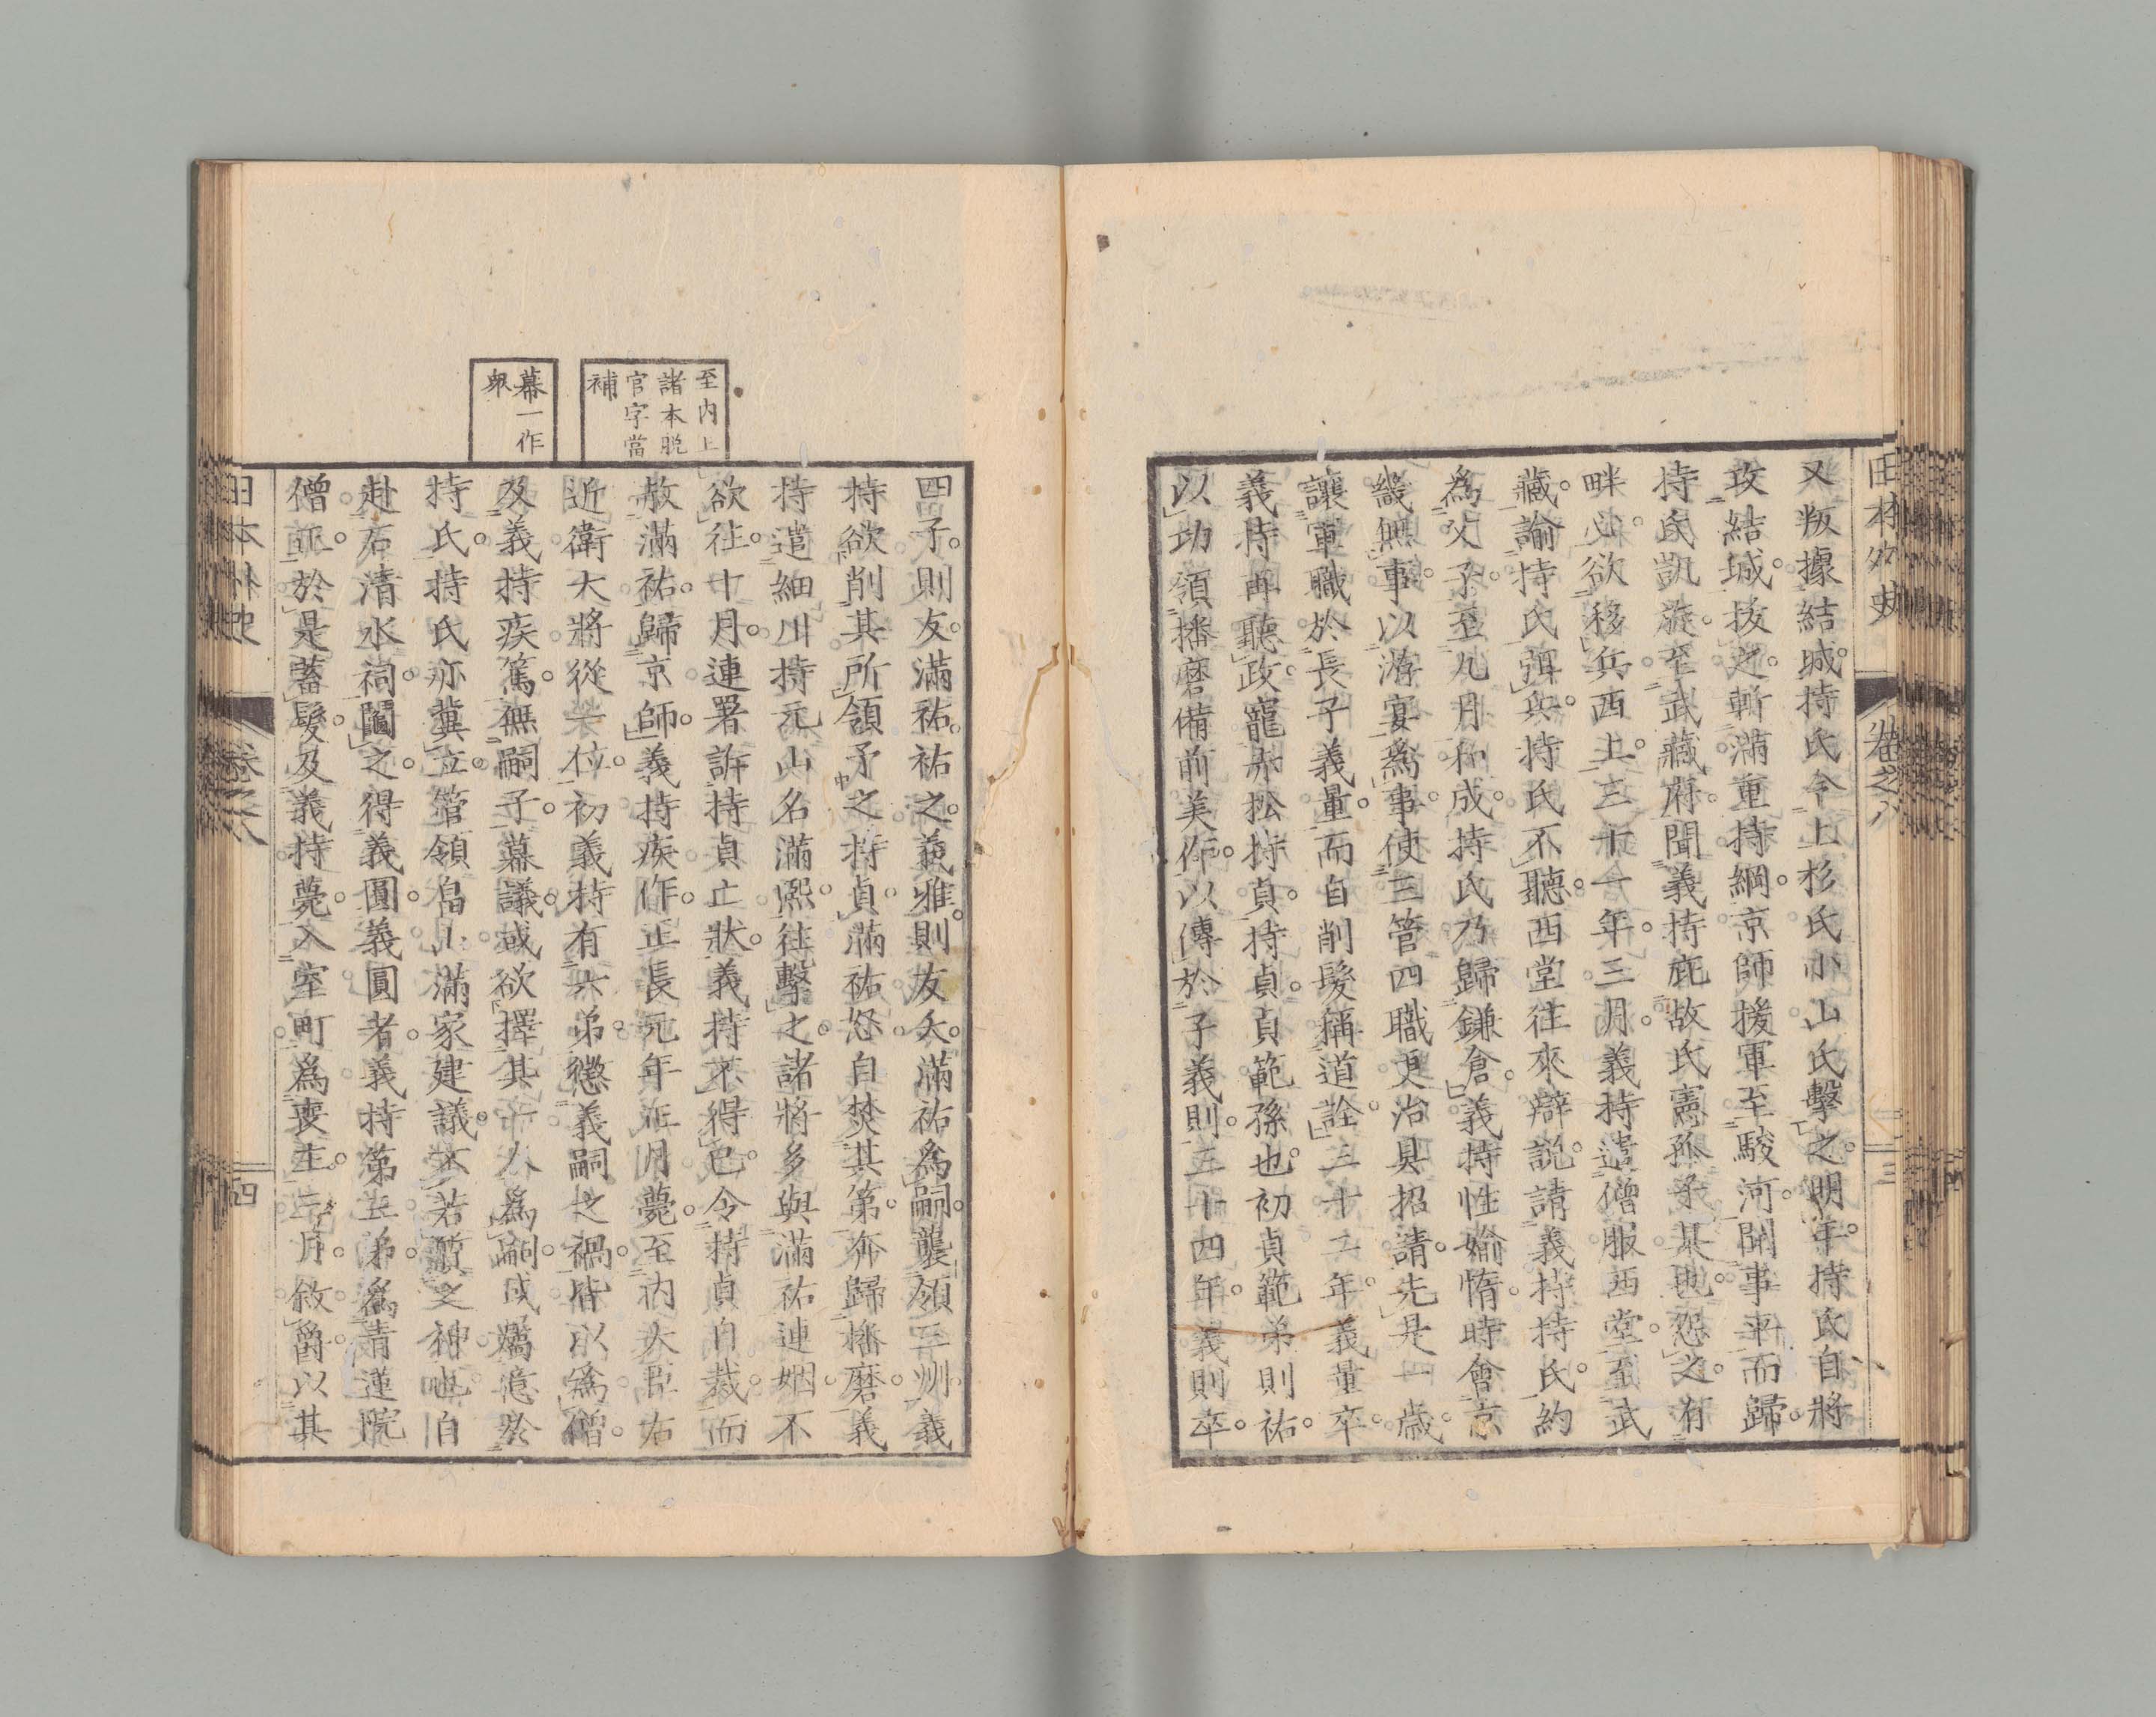 日本外史
卷之八
三
又叛據結城。持氏令上杉氏小山氏擊之。明年。持氏自將
攻結城。拔之。斬滿重持綱。京師援軍至駿河。聞事平而歸。
持氏凱旋。至武藏府。聞義持庇故氏憲孤子某也。怨之。有
畔心。欲移兵西上。三十一年。三月。義持遣僧服西堂。至武
藏。諭持氏弭兵。持氏不聽。西堂往來辯説。請義持持氏。約
為父子。至九月和成。持氏乃歸鎌倉。義持性婾惰。時會京
畿無事。以游宴為事。使三管四職更治具招請。先是一歲。
讓軍職於長子義量。而自削髮稱道詮。三十二年。義量卒。
義持再聽政。寵赤松持貞。持貞。貞範孫也。初貞範弟則祐。
以功領播磨備前美作。以傳於子義則。三十四年。義則卒。
至内上
諸本脱
官字當
補
幕一作
衆
四子。則友。滿祐。祐之。義雅。則友夭。滿祐為嗣。襲領三州。義
持欲削其所領。予之持貞。滿祐怒。自焚其第。奔歸播磨。義
持遣細川持元山名滿熙。往擊之。諸將多與滿祐連姻。不
欲往。十月。連署訴持貞亡狀。義持不得已。令持貞自裁。而
赦滿祐。歸京師。義持疾作。正長元年正月薨。至内大臣右
近衛大將從一位。初義持有六弟。懲義嗣之禍。皆以為僧。
及義持疾篤。無嗣子。幕議。或欲擇其一人為嗣。或屬意於
持氏。持氏亦冀立。管領畠山滿家建議。不若質之神也。自
赴石清水祠。鬮之。得義圓。義圓者。義持第五弟。為青蓮院
僧正。於是蓄髮。及義持薨。入室町為喪主。三月。敘爵。以其
日本外史
卷之八
四